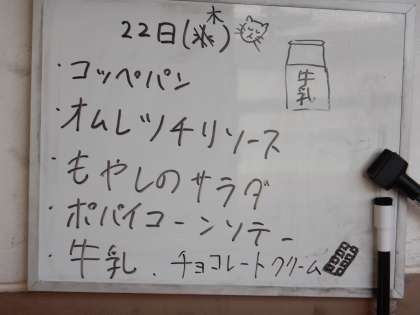 22日(木)
・コッペパン
・オムレツチリソース
・もやしのサラダ
・ポパイコーンソテー
・牛乳 ・チョコレートクリーム
牛乳